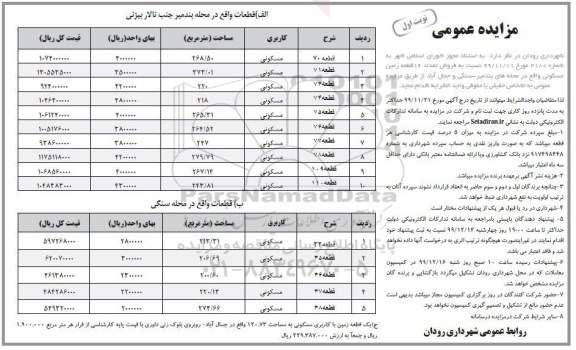 نوبت اول
مزایده عمومی
شهرداری رودان در نظر دارد به استناد مجوز شورای اسلامی شهر به
شماره ۲۱۸۰ مورخ ۹۹/۱۱/۱۱ نسبت به فروش تعداد ۱۶ قطعه زمین
مسکونی واقع در محله های بندمیر-سنگی و جمال آباد از طریق مزایده
عمومی به اشخاص حقیقی یا حقوقی واجد الشرایط اقدام نماید.
لذا متقاضیان واجدالشرایط میتوانند از تاریخ درج آگهی مورخ ۹۹/۱۱/۲۱ حداکثر
به مدت پانزده روز کاری جهت ثبت نام و شرکت در مزایده به سامانه تدارکات
الکترونیکی دولت به نشانی Setadiran.ir مراجعه نمایند.
۱-مبلغ سپرده شرکت در مزایده به میزان ۵ درصد قیمت کارشناسی هر
قطعه میباشد که به صورت واریز نقدی به حساب سپرده شهرداری به شماره
۹۱۷۴۹۸۴۴۸ نزد بانک کشاورزی و یا ارائه ضمانتنامه معتبر بانکی دارای حداقل
سه ماه اعتبار میباشد.
۲-هزینه نشر آگهی برعهده برنده مزایده میباشد.
۳-چنانچه برندگان اول و دوم و سوم حاضر به انعقاد قرارداد نشوند سپرده آنان به
ترتیب اولویت به نفع شهرداری ضبط خواهد شد.
۴-شهرداری در رد یا قبول هر یک از پیشنهادات مختار است.
۵- پیشنهاد دهندگان بایستی بامراجعه به سامانه تدارکات الکترونیکی دولت
حداکثر تا ساعت ۱۹:۰۰ روز چهارشنبه ۹۹/۱۲/۱۳ نسبت به ثبت پیشنهاد خود
اقدام نمایند در غیراینصورت هیچگونه ترتیب اثری به درخواست آنها داده نخواهد
شد و فاقد اعتبار می باشد.
۶-پیشنهادات رسیده ساعت ۱۰ صبح روز شنبه ۹۹/۱۲/۱۶ در کمیسیون
معاملات که در محل شهرداری رودان تشکیل میگردد بازگشایی و برنده گان
مزایده مشخص خواهد شد.
۷-حضور شرکت کنندگان در روز برگزاری کمیسیون مجاز میباشد بدیهی است
عدم حضور مانع از تشکیل و تصمیم گیری کمیسیون نخواهد بود.
۸-سایر شرایط شرکت در مزایده درسامانه
روابط عمومی شهرداری رودان
الف)قطعات واقع در محله بندمیر جنب تالار بیژنی
ردیف شرح کاربری مساحت (مترمربع) بهای واحد(ریال) قیمت کل ریال)
۱ قطعه ۷۰ مسکونی ۲۶۸/۵۰ ۴۰۰۰۰۰۰ ۱۰۷۴۰۰۰۰۰۰
۲ قطعه ۷۱ مسکونی ۳۷۳/۰۱ ۳۵۰۰۰۰۰ ۱۳۰۵۵۳۵۰۰۰
۳ مسکونی ۲۲۰ ۴۲۰۰۰۰۰ ۹۲۴۰۰۰۰۰۰
۴ مسکونی ۲۱۸ ۴۸۰۰۰۰۰ ۱۰۴۶۴۰۰۰۰۰
۵ قطعه ۷۵ مسکونی ۲۶۵/۳۱ ۴۰۰۰۰۰۰ ۱۰۶۱۲۴۰۰۰۰
۶ قطعه ۷۶ مسکونی ۲۶۴/۵۲ ۳۸۰۰۰۰۰ ۱۰۰۵۱۷۶۰۰۰
۷ قطعه ۷۷ مسکونی ۲۴۷ ۳۸۰۰۰۰۰ ۹۳۸۶۰۰۰۰۰
۸ قطعه ۷۸ مسکونی ۲۷۹/۷۹ ۴۲۰۰۰۰۰ ۱۱۷۵۱۱۸۰۰۰
۹ قطعه ۱۰۹ مسکونی ۲۶۷/۱۴ ۴۰۰۰۰۰۰ ۱۰۶۸۵۶۰۰۰۰
۱۰ قطعه ۱۱۰ مسکونی ۲۴۳/۸۱ ۴۳۰۰۰۰۰ ۱۰۴۸۳۸۳۰۰۰
ب) قطعات واقع در محله سنگی
ردیف شرح کاربری مساحت (مترمربع) بهای واحد(ریال) قیمت کل (ریال)
۱ مسکونی ۲۱۳/۳۱ ۲۸۰۰۰۰۰ ۵۹۷۲۶۸۰۰۰
۲ مسکونی ۲۰۶/۶۹ ۳۰۰۰۰۰۰ ۶۲۰۰۷۰۰۰۰
۳ قطعه ۴۶ مسکونی ۲۰۰/۶۰ ۲۳۰۰۰۰۰ ۴۶۱۳۸۰۰۰۰
۴ قطعه ۴۷ مسکونی ۲۲۰/۱۳ ۲۲۰۰۰۰۰ ۴۸۴۲۸۶۰۰۰
۵ قطعه ۴۸ مسکونی ۲۷۴/۶۶ ۲۰۰۰۰۰۰ ۵۴۹۳۲۰۰۰۰
ج)یک قطعه زمین با کاربری مسکونی به مساحت ۱۲۰.۷۳ واقع در جمال آباد- روبروی بلوک زنی داوری با قیمت پایه کارشناسی از قرار هر متر مربع ۱,۹۰۰,۰۰۰
ریال و جمعاً به ارزش ۲۲۹,۳۸۷,۰۰۰ ریال